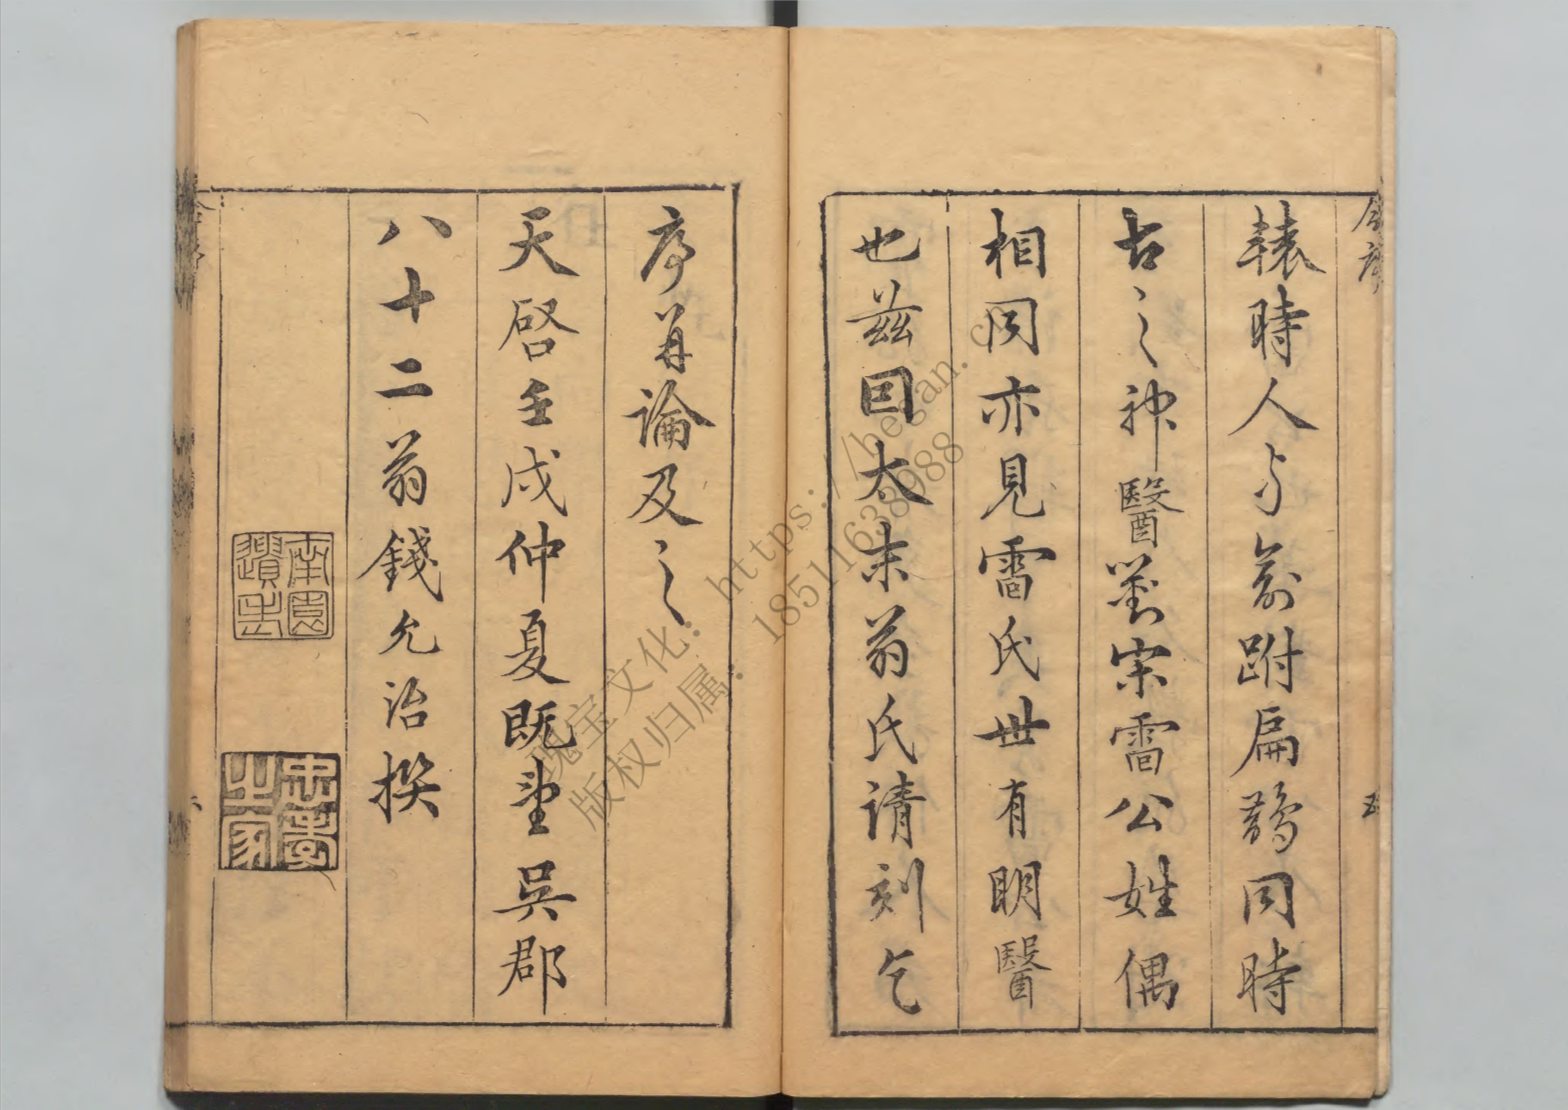 轅時人與俞跗扁鵲同時
古之神醫劉宋雷公姓偶
相同亦見雷氏世有明醫
也兹因太末翁氏請刻乞
序并論及之
天啓壬戌仲夏既望吳郡
八十二翁錢允治撰
忠孝之家
https://
18511638988
版权归属: